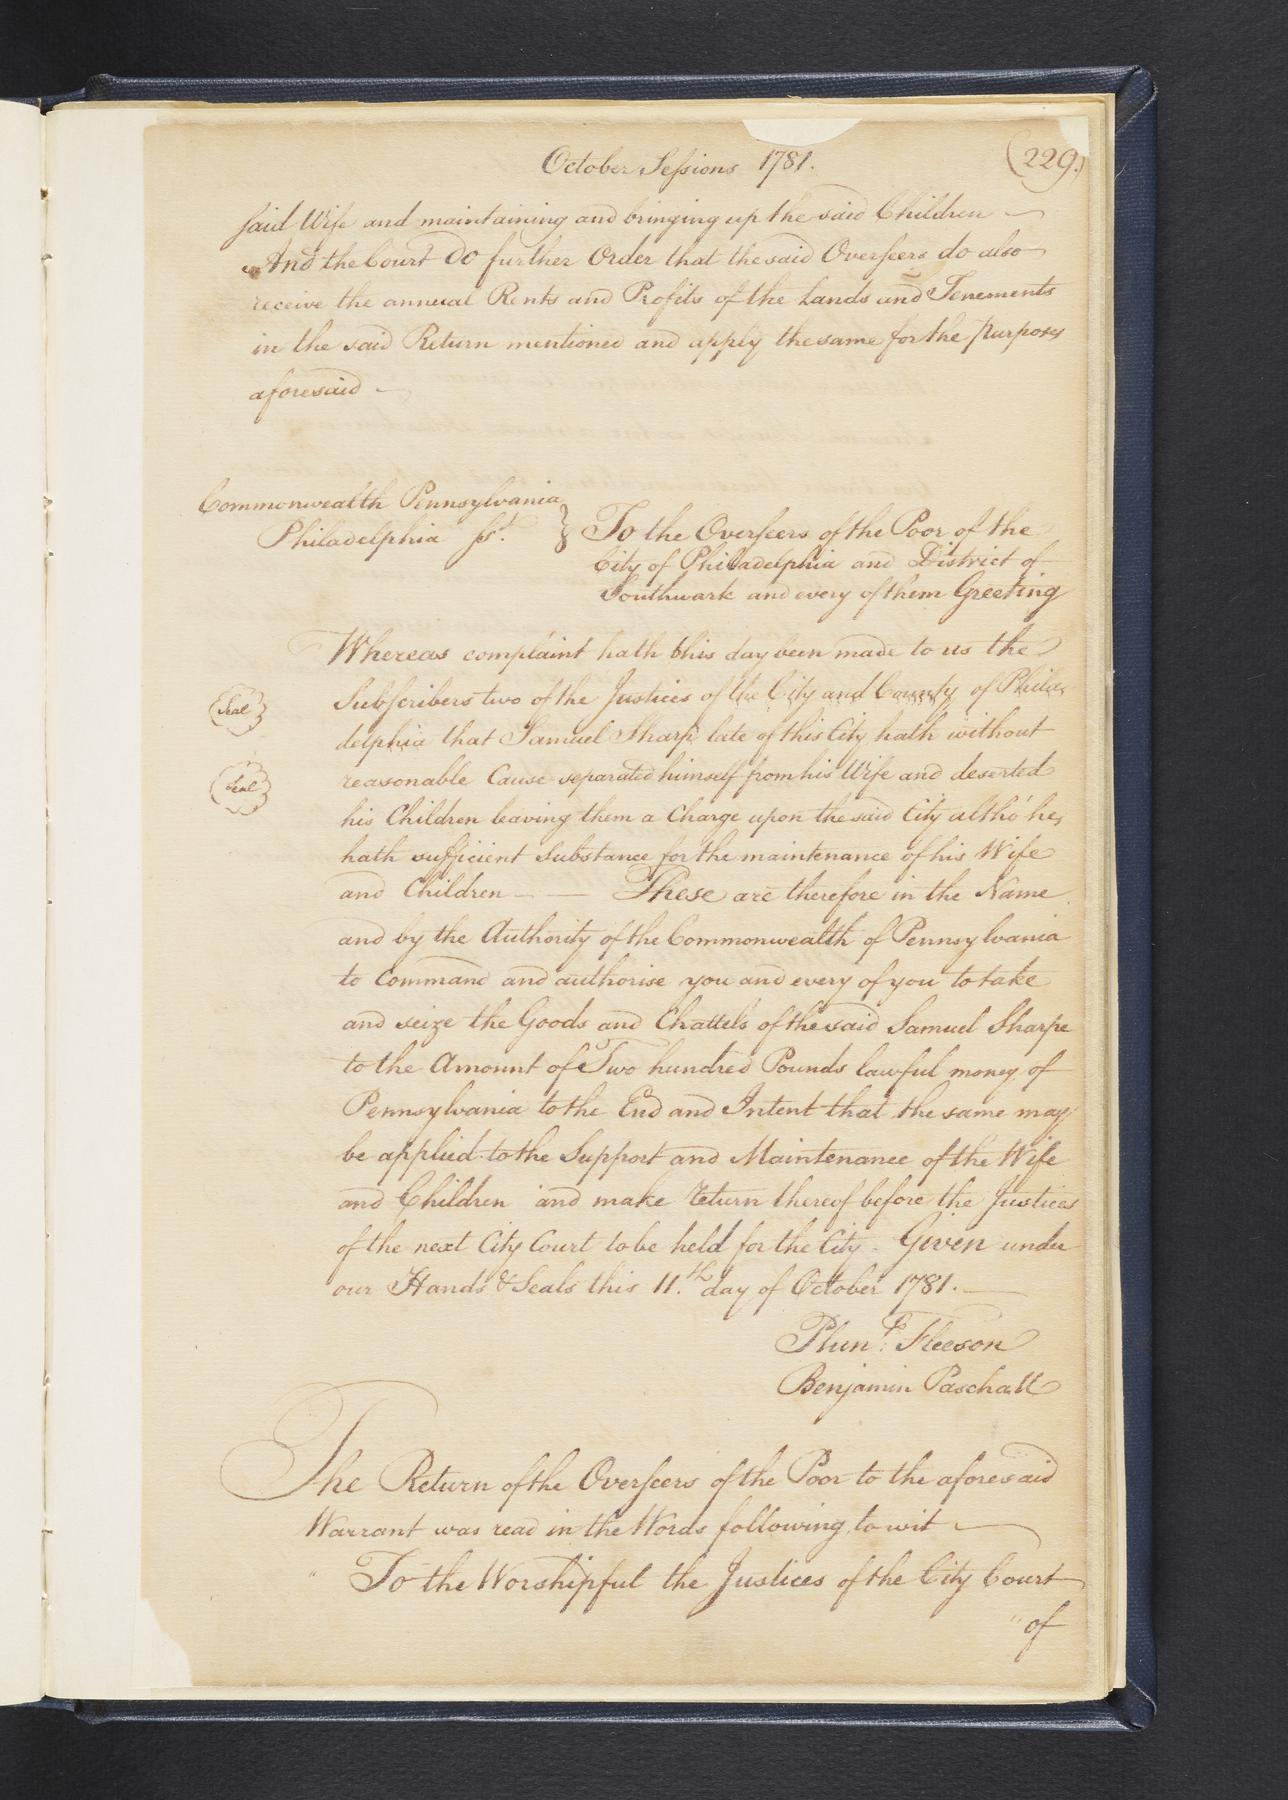 October Sessions 1781.
(229.)
said Wife and maintaining and bringing up the said Children
And the Court Do further Order that the said Overseers do also
receive the annual Rents and Profits of the Lands and Tenements
in the said Return mentioned and apply the same for the purposes
aforesaid
Commonwealth Pennsylvania
Philadelphia Ss.t
} To the Overseers of the Poor of the
City of Philadelphia and District of
Southwark and every of them Greeting
Whereas complaint hath this day been made to us the
Seal
Subscribers two of the Justices of the City and County of Phila-
delphia that Samuel Sharp late of this City hath without
Seal
reasonable Cause separated himself from his Wife and deserted
his Children leaving them a Charge upon the said City altho' he
hath sufficient substance for the maintenance of his Wife
and Children — — These are therefore in the Name
and by the Authority of the Commonwealth of Pennsylvania
to Command and authorise you and every of you to take
and seize the Goods and Chattels of the said Samuel Sharpe
to the Amount of Two hundred Pounds lawful money of
Pennsylvania to the End and Intent that the same may
be applied to the Support and Maintenance of the Wife
and Children and make return thereof before the Justices
of the next City Court to be held for the City. Given under
our Hands & Seals this 11.th day of October 1781.
Plun.t Fleeson
Benjamin Paschall
The Return of the Overseers of the Poor to the aforesaid
Warrant was read in the Words following to wit
" To the Worshipful the Justices of the City Court
" of